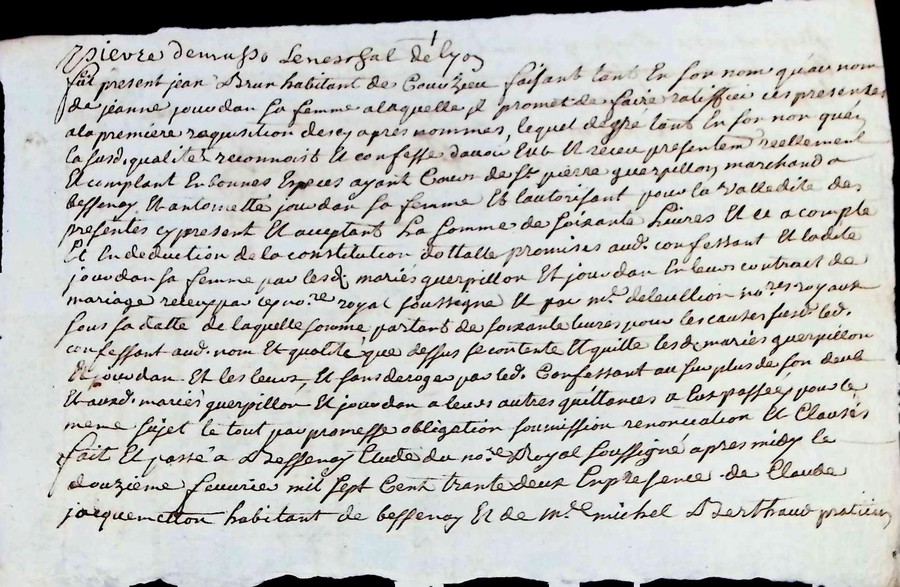 Pierre demasso senechal de lyon
fut present jean Brun habitant de Couzieu faisant tant En son nom qu'au nom
de jeanne jourdan sa femme a laquelle il promet de faire ratiffier ces presentes
a la premiere requisition des cy apres nommes, lequel de gré tant En son nom qu'en
la susd. qualité reconnoit Et confesse d'avoir Eub Et receu presentem. reellement
Et comptant En bonnes Especes ayant Cours de Sr. pierre guerpillon marchand a
bessenay Et antoinette jourdan sa femme Et l'autorisant pour la Valledite des
presentes cy present et acceptant La somme de soixante Livres Et ce a compte
Et En deduction de la constitution dottalle promises aud. confessant Et ladite
jourdan sa femme par lesd. mariés guerpillon Et jourdan En leurs contract de
mariage receus par no.re royal soussigné Et par me. no.res royaux
sous sa datte de laquelle somme partant de soixante livres pour les causes susd. led.
confessant aud. nom Et qualité que dessus se contente Et quitte lesd. mariés guerpillon
Et jourdan Et les leurs, Et sans deroger par led. Confessant au surplus de son deub
Et ausd. mariés guerpillon Et jourdan a leurs autres quittances a Eux passées pour le
meme sujet le tout par promesse obligation soumission renonciation Et Clauses
fait Et passé a Bessenay Etude du no.re Royal soussigné apres midy le
douzième fevrier mil sept Cent trante deux En presence de Claude
jacquemetton habitant de bessenay Et de Me. michel Berthaud praticien